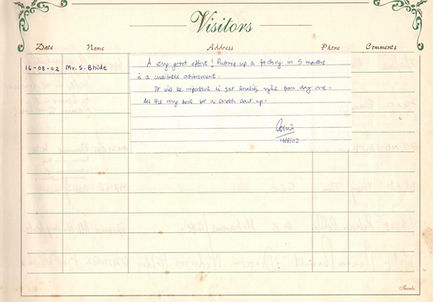 Visitors
Date Name Address Phone Comments
16-08-02 Mr. S. Bhide
A very good effort! Putting up a factory in 5 months
is a credible achievement.
It will be important to get quality right from day one.
All the very best for a smooth start up.
16/8/02